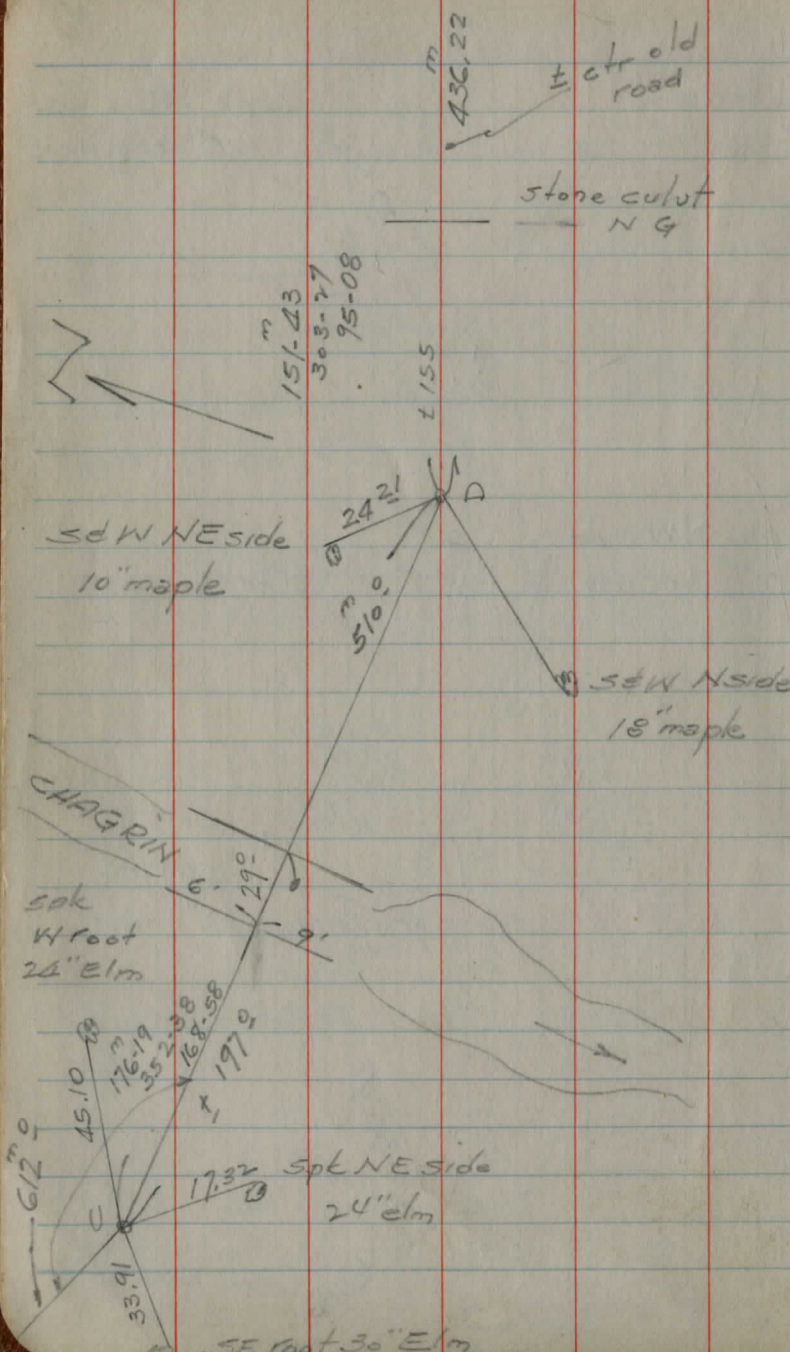 m
436.22
± ctr old
road
stone culvt
N G
m
151-43
303-27
95-08
± 155
D
24 21
S&W NE side
10" maple
m
510.0
S&W N side
18" maple
CHAGRIN
6'
29.0
9'
spk
W root
24" Elm
m
176-19
352-38
168-58
197.0
45.10
m
612.0
17.32
Spk NE side
24" elm
C
33.91
SE root 30" Elm